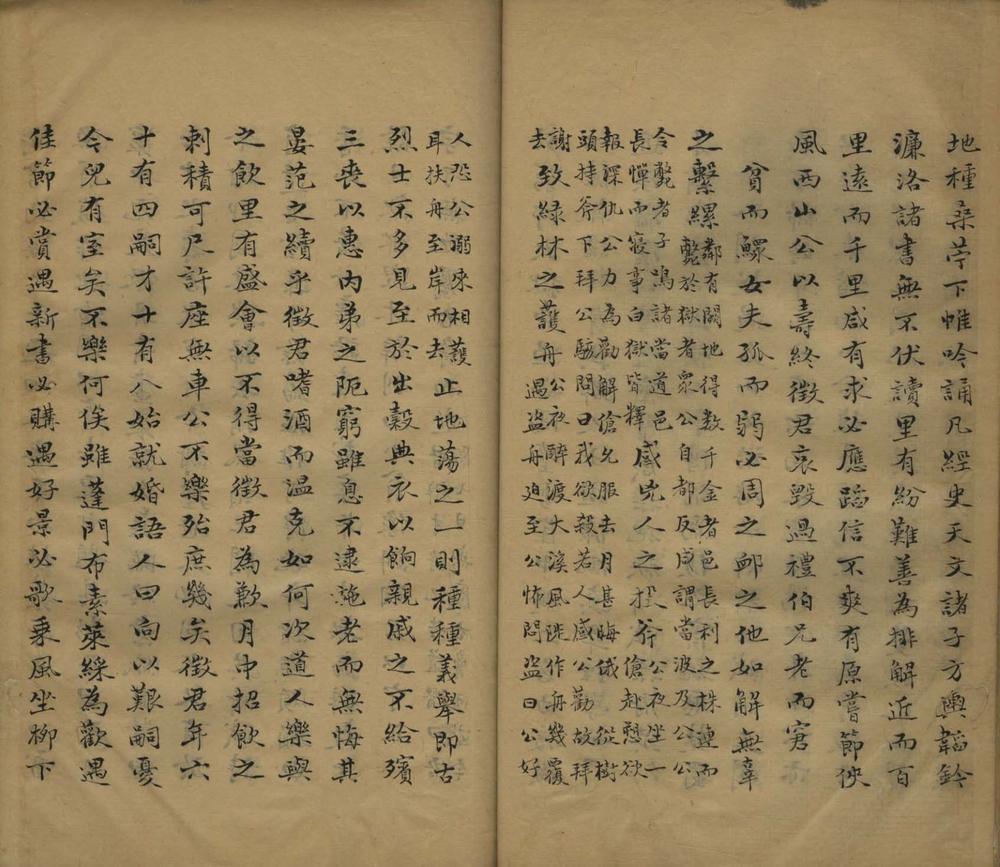 地種桑苧下帷吟誦凡經史天文諸子方輿韜鈐
濂洛諸書無不伏讀里有紛難善為排解近而百
里遠而千里咸有求必應蹈信不爽有原嘗節俠
風西山公以壽終徵君哀毀過禮伯兄老而窘
貧而鰥女夫孤而弱必周之卹之他如解無辜
之繫縲
鄰有鬪地得数千金者邑長利之株連而
斃於獄者衆公自都反咸謂當波及公公
令斃者子鳴諸當道邑
長憚而寢事白獄皆釋
感兇人之投斧
公夜坐一
傖赴愬欲
報深仇公力為勸解傖允服去月甚晦俄從樹
頭持斧下拜公駭問曰我欲殺若人感公勸故拜
謝
去
致緑林之護舟
公夜醉渡大溪風陡作舟幾覆
遇盗舟迫至公怖問盗曰公好
人恐公溺來相護
耳扶舟至岸而去
止地蕩之一則種種義舉即古
烈士不多見至於出穀典衣以餉親戚之不給殯
三喪以惠內弟之阨窮雖息不逮施老而無悔其
晏范之續乎徵君嗜酒而温克如何次道人樂與
之飲里有盛會以不得當徵君為歉月中招飲之
刺積可尺許座無車公不樂殆庶幾矣徵君年六
十有四嗣才十有八始就婚語人曰向以艱嗣憂
今兒有室矣不樂何俟雖蓬門布素萊綵為歡遇
佳節必賞遇新書必購遇好景必歌乘風坐柳下